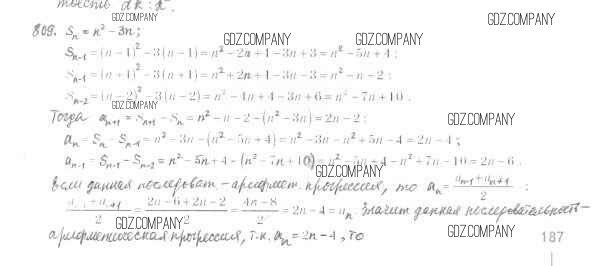 то есть
GDZ.COMPANY
GDZ.COMPANY
809. Sₙ = n² - 3n;
GDZ.COMPANY GDZ.COMPANY
Sₙ₋₁ = (n - 1)² - 3(n - 1) = n² - 2n + 1 - 3n + 3 = n² - 5n + 4;
Sₙ₊₁ = (n + 1)² - 3(n + 1) = n² + 2n + 1 - 3n - 3 = n² - n - 2;
Sₙ₋₂ = (n - 2)² - 3(n - 2) = n² - 4n + 4 - 3n + 6 = n² - 7n + 10.
GDZ.COMPANY
Тогда aₙ₊₁ = Sₙ₊₁ - Sₙ = n² - n - 2 - (n² - 3n) = 2n - 2;
GDZ.COMPANY
aₙ = Sₙ - Sₙ₋₁ = n² - 3n - (n² - 5n + 4) = n² - 3n - n² + 5n - 4 = 2n - 4;
aₙ₋₁ = Sₙ₋₁ - Sₙ₋₂ = n² - 5n + 4 - (n² - 7n + 10) = n² - 5n + 4 - n² + 7n - 10 = 2n - 6.
GDZ.COMPANY
Если данная последоват. - арифмет. прогрессия, то aₙ = (aₙ₋₁ + aₙ₊₁)/2 :
GDZ.COMPANY
(aₙ₋₁ + aₙ₊₁)/2 = (2n - 6 + 2n - 2)/2 = (4n - 8)/2 = 2n - 4 = aₙ. Значит данная последовательность -
GDZ.COMPANY
арифметическая прогрессия, т.к. aₙ = 2n - 4, то
GDZ.COMPANY
187